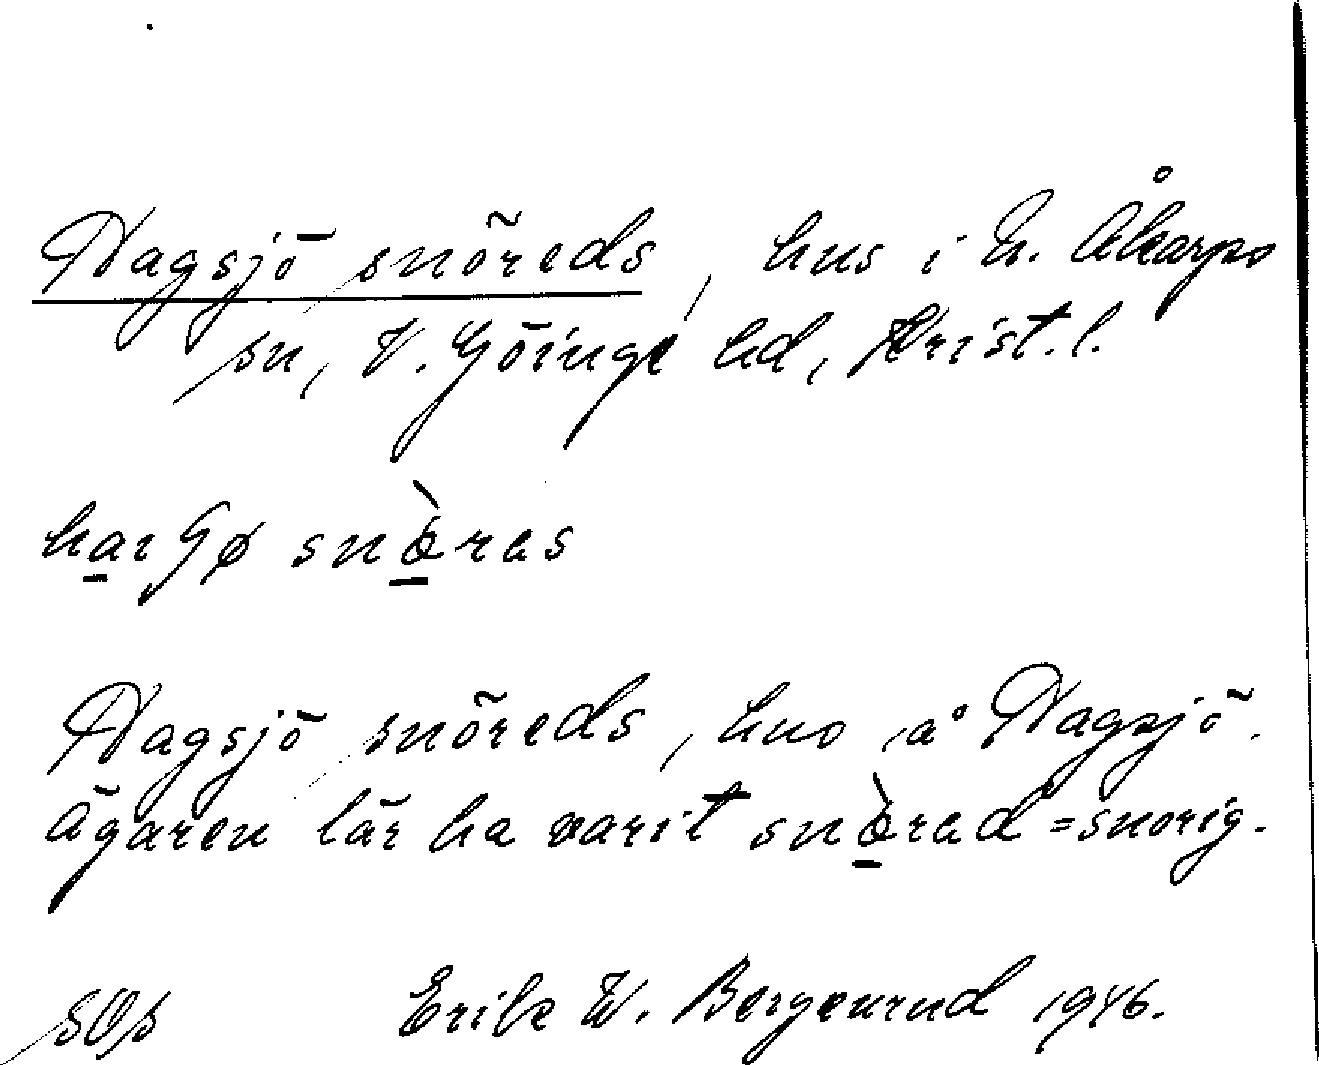 Hagsjö snöreds, hus i N. Åkarps
sn, V. Göinge hd, Krist. l.
snö̀ras
Hagsjö snöreds, hus å Hagsjö.
Ägaren lär ha varit snö̀rad = snorig.
Erik W. Bergenrud 1946.